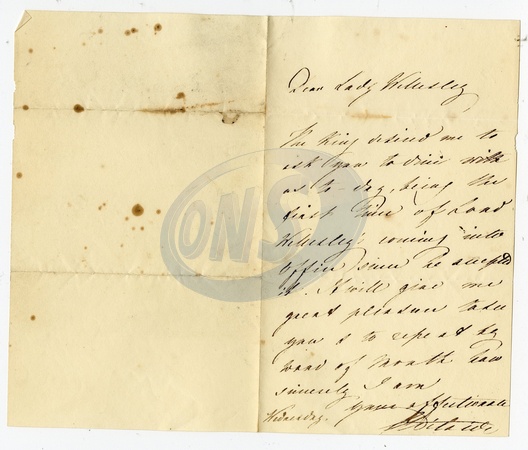 Dear Lady Wellesley
The King desired me to
ask you to dine with
us to-day, being the
first Time of Lord
Wellesley's coming into
Office since he accepted
it. It will give me
great pleasure to see
you & to repeat by
word of mouth how
sincerely I am
Wednesday. yours affectionate
ONS